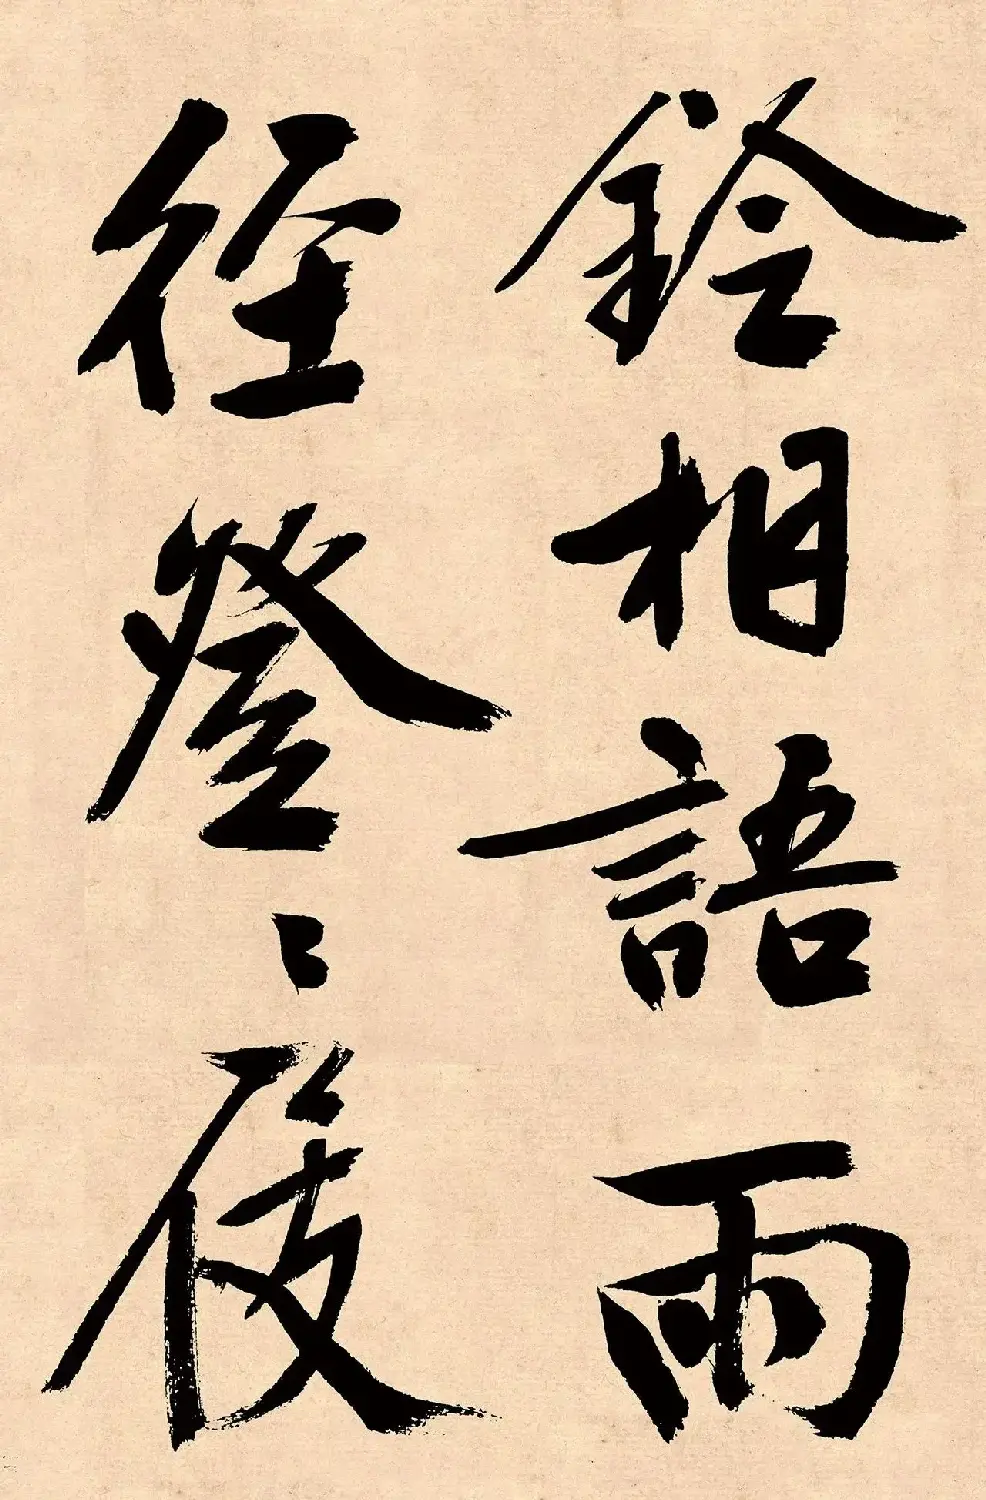 鈴相語雨
徑登〻屐